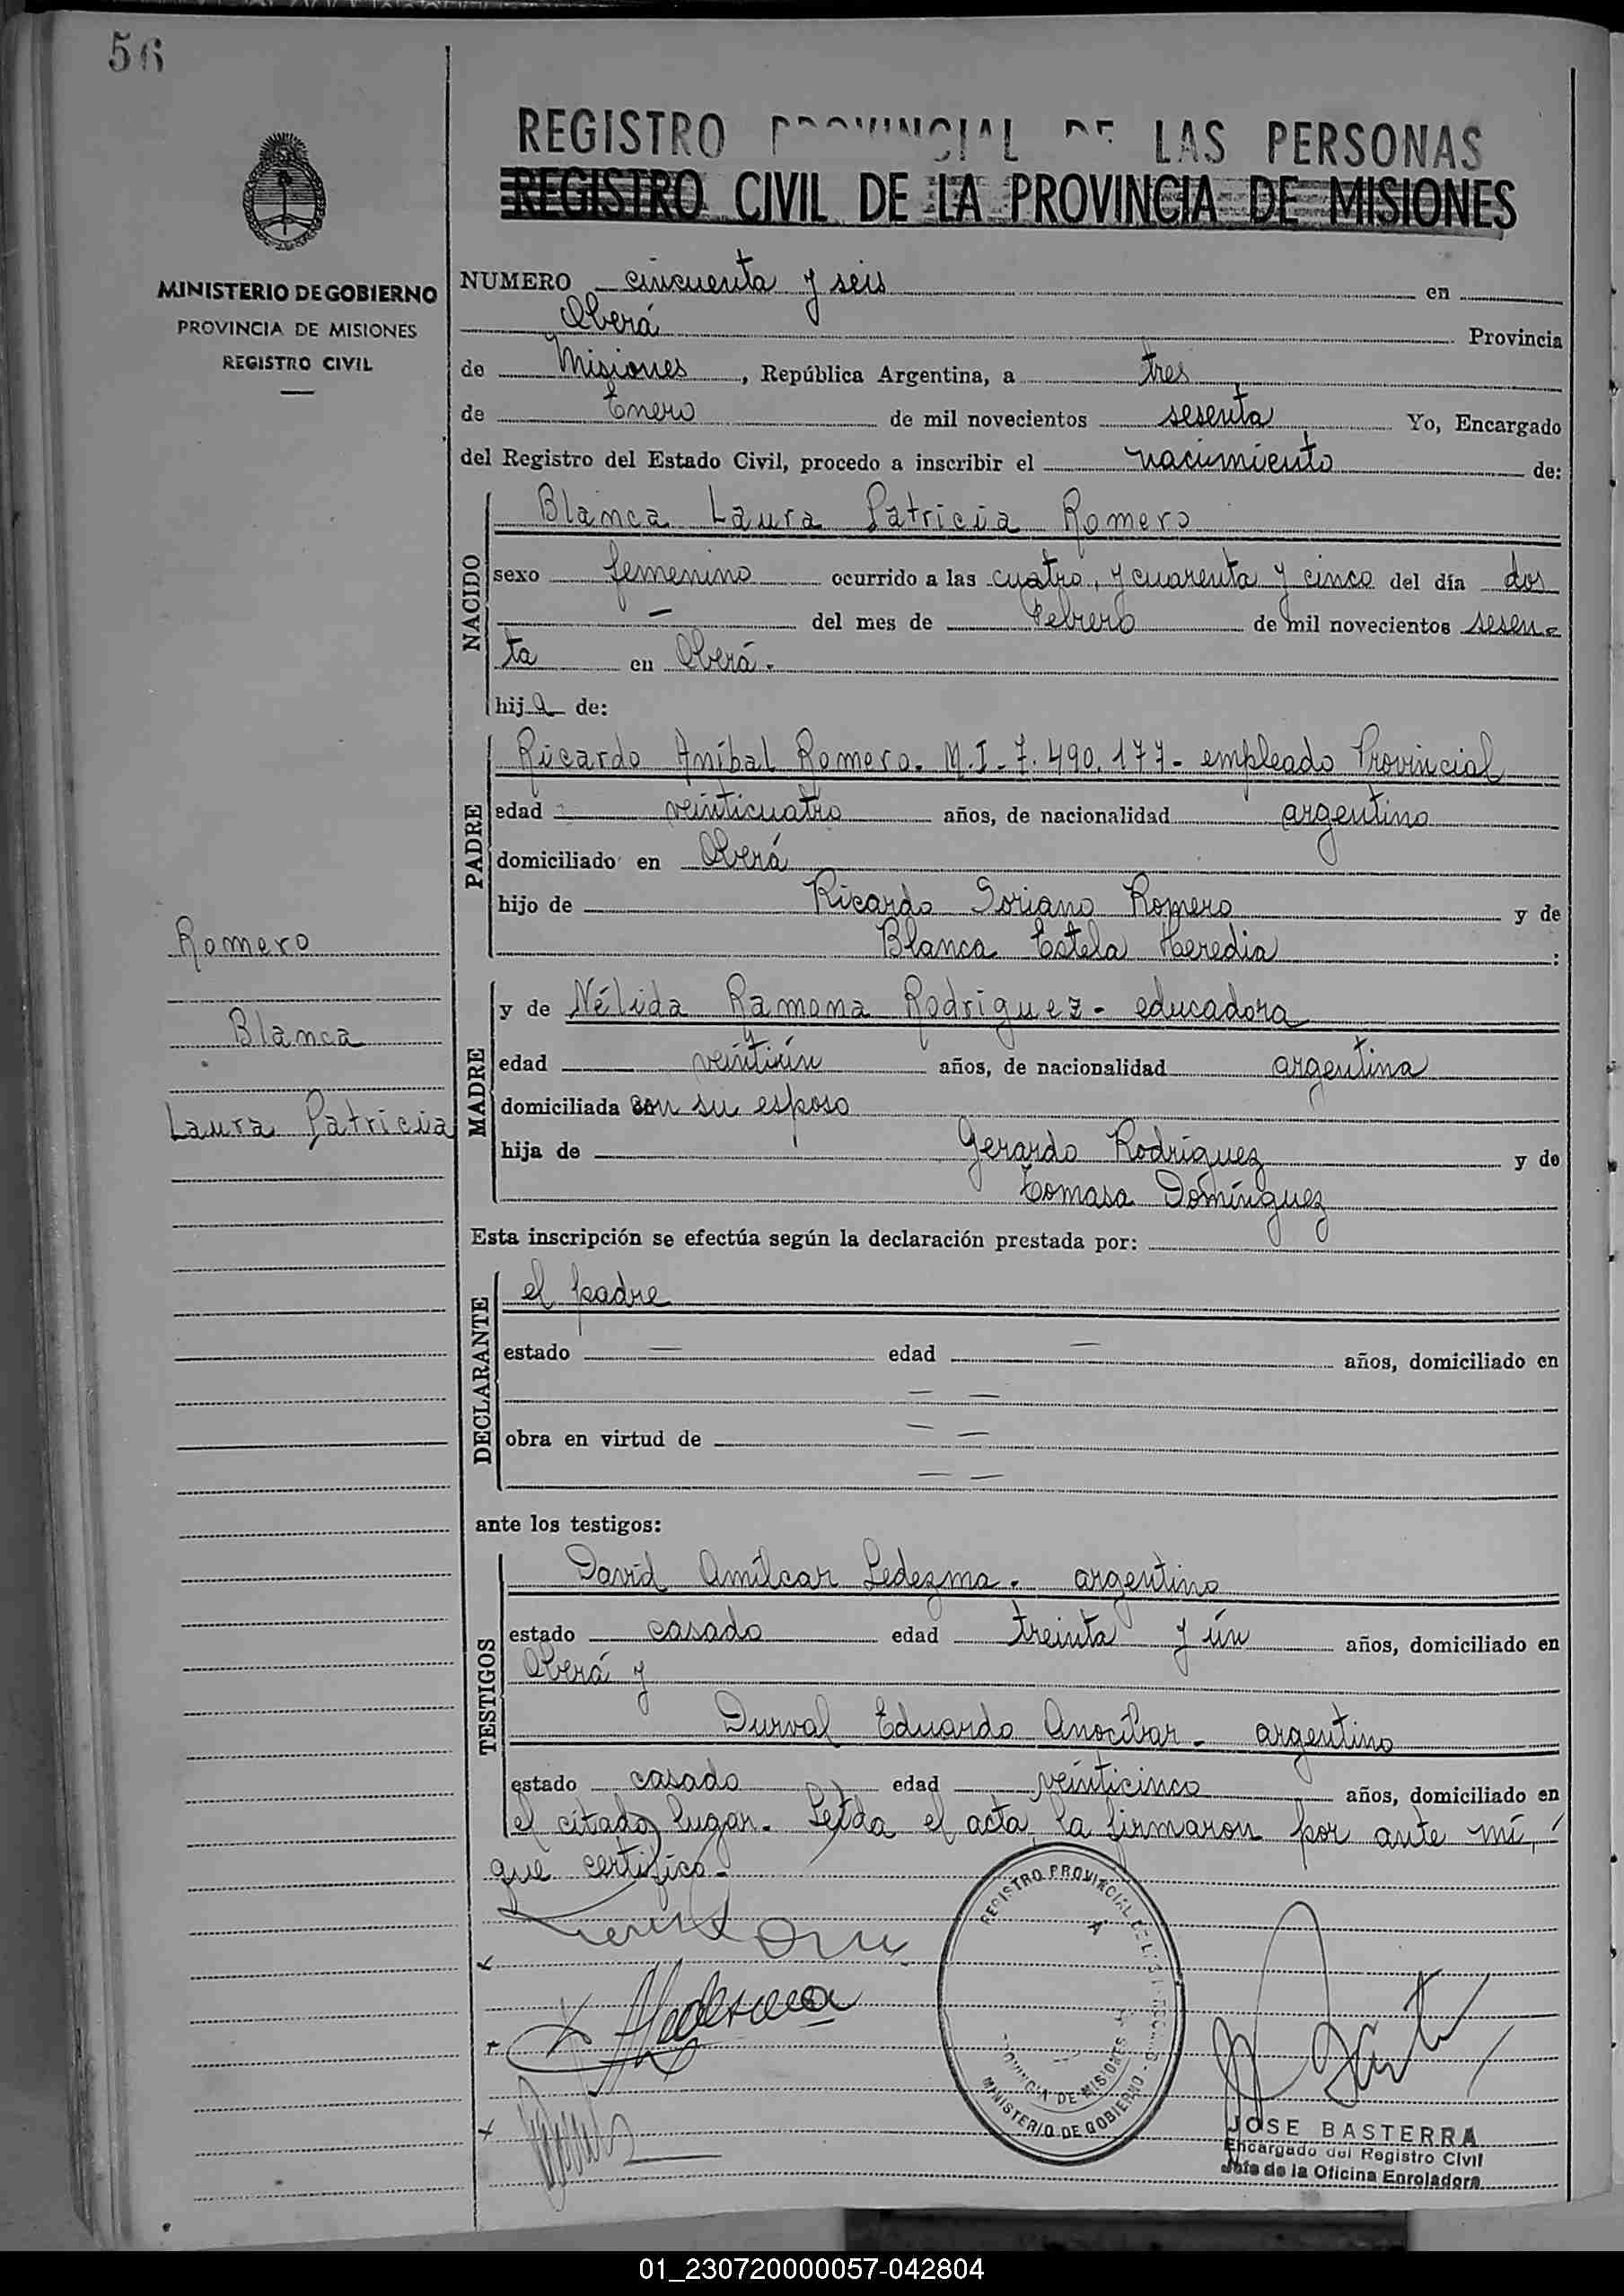 56
REGISTRO PROVINCIAL DE LAS PERSONAS
REGISTRO CIVIL DE LA PROVINCIA DE MISIONES
MINISTERIO DE GOBIERNO
PROVINCIA DE MISIONES
REGISTRO CIVIL
Romero
Blanca
Laura Patricia
NUMERO cincuenta y seis en
Oberá Provincia
de Misiones, República Argentina, a tres
de Enero de mil novecientos sesenta Yo, Encargado
del Registro del Estado Civil, procedo a inscribir el nacimiento de:
NACIDO
Blanca Laura Patricia Romero
sexo femenino ocurrido a las cuatro, y cuarenta y cinco del día dos
— del mes de Febrero de mil novecientos sesen-
ta en Oberá.
hija de:
PADRE
Ricardo Aníbal Romero. M.I-7.490.177- empleado Provincial
edad veinticuatro años, de nacionalidad argentino
domiciliado en Oberá
hijo de Ricardo Soriano Romero y de
Blanca Estela Heredia :
MADRE
y de Nélida Ramona Rodriguez- educadora
edad veintiún años, de nacionalidad argentina
domiciliada con su esposo
hija de Gerardo Rodríguez y de
Tomasa Domínguez
Esta inscripción se efectúa según la declaración prestada por:
DECLARANTE
el padre
estado — edad — años, domiciliado en
— —
obra en virtud de — —
— —
ante los testigos:
TESTIGOS
David Amílcar Ledezma. argentino
estado casado edad treinta y ún años, domiciliado en
Oberá y
Durval Eduardo Anocíbar- argentino
estado casado edad veinticinco años, domiciliado en
el citado lugar. Leída el acta, la firmaron por ante mí,
que certifico-
REGISTRO PROVINCIAL DE LAS PERSONAS
PROVINCIA DE MISIONES
MINISTERIO DE GOBIERNO
JOSE BASTERRA
Encargado del Registro Civil
Jefe de la Oficina Enroladora
01_230720000057-042804